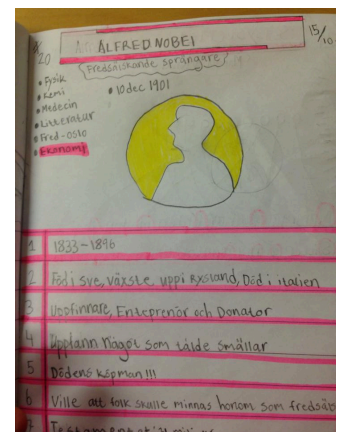 ALFRED NOBEL
15/10
20
Fredsälskande sprängare
• Fysik
• Kemi
• Medecin
• Litteratur
• Fred - oslo
• Ekonomi
• 10 dec 1901
1 1833-1896
2 Född i sve, växste uppi Ryssland, Död i italien
3 Uppfinnare, Enteprenör och Donator
4 Uppfann något som tålde smällar
5 Dödens köpman!!!
6 Ville att folk skulle minnas honom som fredsäls
7